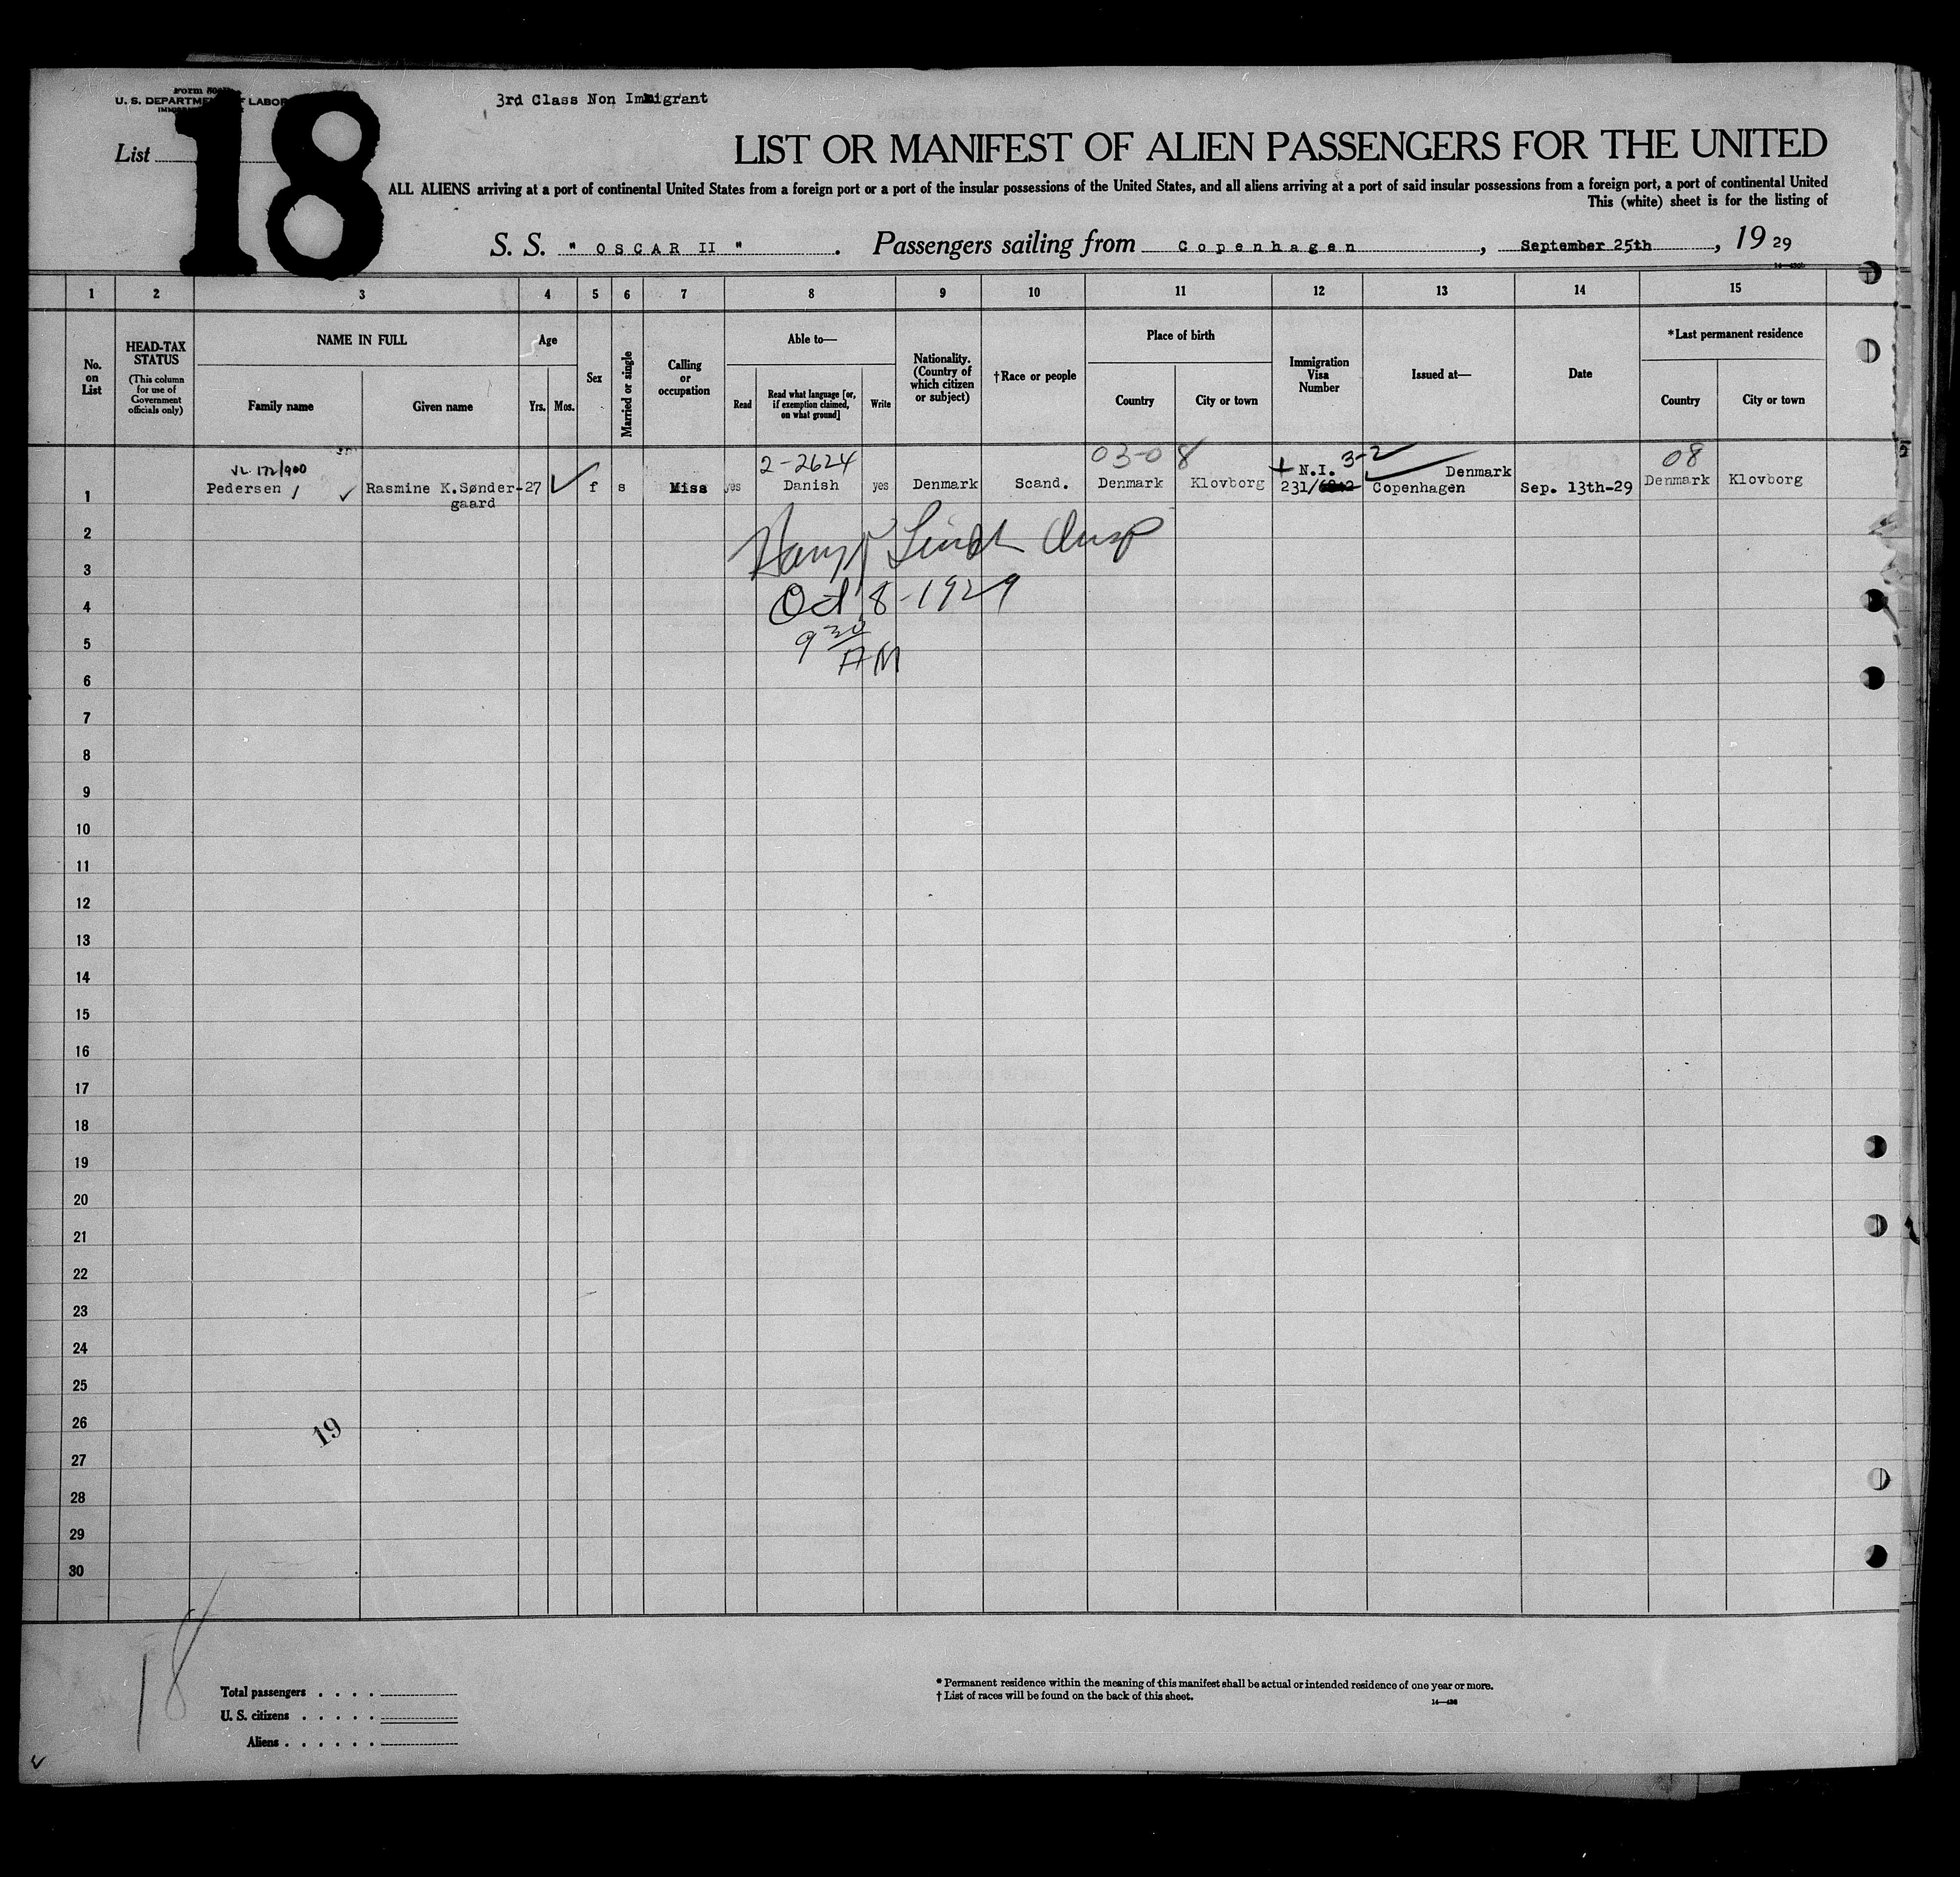 Form 500
U. S. DEPARTMENT OF LABOR
List
18
3rd Class Non Immigrant
LIST OR MANIFEST OF ALIEN PASSENGERS FOR THE UNITED
ALL ALIENS arriving at a port of continental United States from a foreign port or a port of the insular possessions of the United States, and all aliens arriving at a port of said insular possessions from a foreign port, a port of continental United
This (white) sheet is for the listing of
S. S. " OSCAR II " . Passengers sailing from Copenhagen , September 25th , 19 29
1 2 3 4 5 6 7 8 9 10 11 12 13 14 15
No. on List
HEAD-TAX STATUS
(This column for use of Government officials only)
NAME IN FULL
Family name
Given name
Age
Yrs. Mos.
Sex
Married or single
Calling or occupation
Able to—
Read
Read what language [or, if exemption claimed, on what ground]
Write
Nationality. (Country of which citizen or subject)
†Race or people
Place of birth
Country
City or town
Immigration Visa Number
Issued at—
Date
*Last permanent residence
Country
City or town
172/900 2-2624 03-08 3-2 08
N.I. Denmark
1 Pedersen Rasmine K.Sønder- 27 f s Miss yes Danish yes Denmark Scand. Denmark Klovborg 231/ Copenhagen Sep. 13th-29 Denmark Klovborg
gaard
2
3
Oct 8-1929
4
9 30
5
AM
6
7
8
9
10
11
12
13
14
15
16
17
18
19
20
21
22
23
24
25
26
19
27
28
29
30
18
Total passengers . . . .
U. S. citizens . . . . .
Aliens . . . . . .
* Permanent residence within the meaning of this manifest shall be actual or intended residence of one year or more.
† List of races will be found on the back of this sheet.